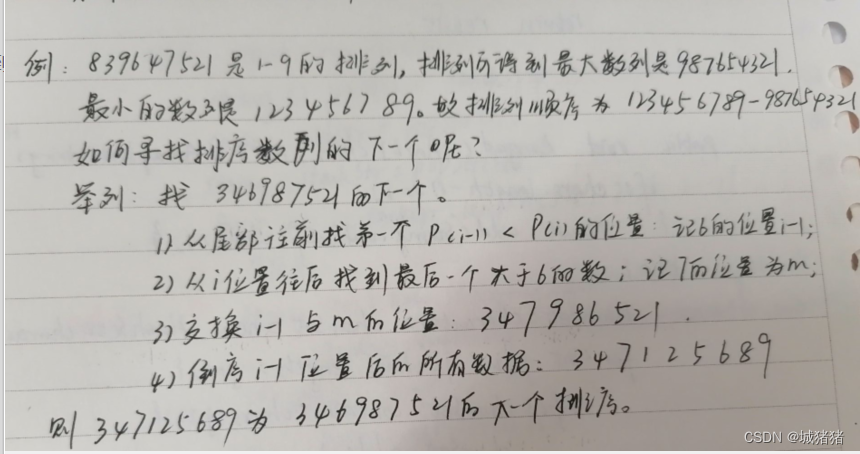 例：839647521是1-9的排列，排列所得到最大数列是987654321.
最小的数列是123456789。故排列顺序为123456789-987654321
如何寻找排序数列的下一个呢？
举列：找346987521的下一个。
1) 从尾部往前找第一个P(i-1) < P(i)的位置：记6的位置i-1;
2) 从i位置往后找到最后一个大于6的数；记7的位置为m;
3) 交换i-1与m的位置：347986521.
4) 倒序i-1位置后的所有数据：347125689
则347125689为346987521的下一个排序。
CSDN @城猪猪